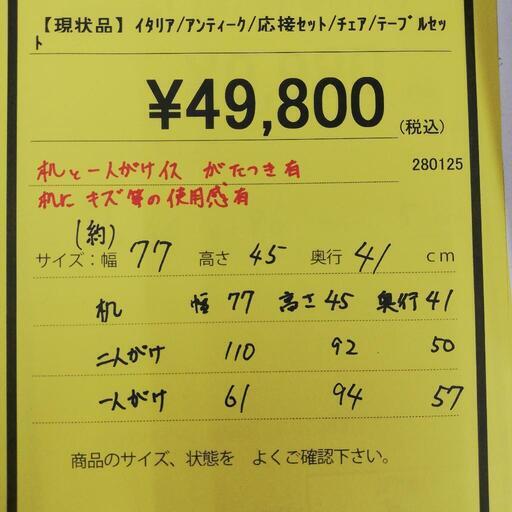 【現状品】ｲﾀﾘｱ/ｱﾝﾃｨｰｸ/応接ｾｯﾄ/ﾁｪｱ/ﾃｰﾌﾞﾙｾｯ
ﾄ
¥49,800 (税込)
机と一人がけイス がたつき有 280125
机に キズ等の使用感有
(約)
サイズ：幅 77 高さ 45 奥行 41 cm
机 幅 77 高さ 45 奥行 41
二人がけ 110 92 50
一人がけ 61 94 57
商品のサイズ、状態を よくご確認下さい。